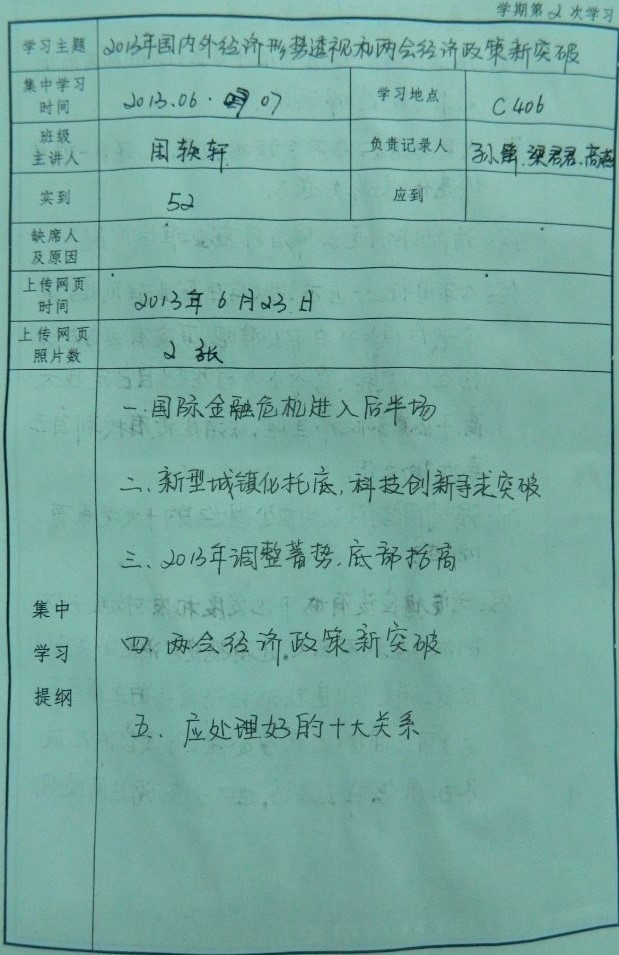 学期第2次学习
学习主题 2013年国内外经济形势透视和两会经济政策新突破
集中学习时间 2013.06.07 学习地点 C406
班级主讲人 周轶轩 负责记录人 梁君君、高燕
实到 52 应到
缺席人及原因
上传网页时间 2013年6月23日
上传网页照片数 2张
一.国际金融危机进入后半场
二、新型城镇化托底,科技创新寻求突破
三、2013年调整蓄势,底部抬高
集中
学习
提纲
四.两会经济政策新突破
五.应处理好的十大关系